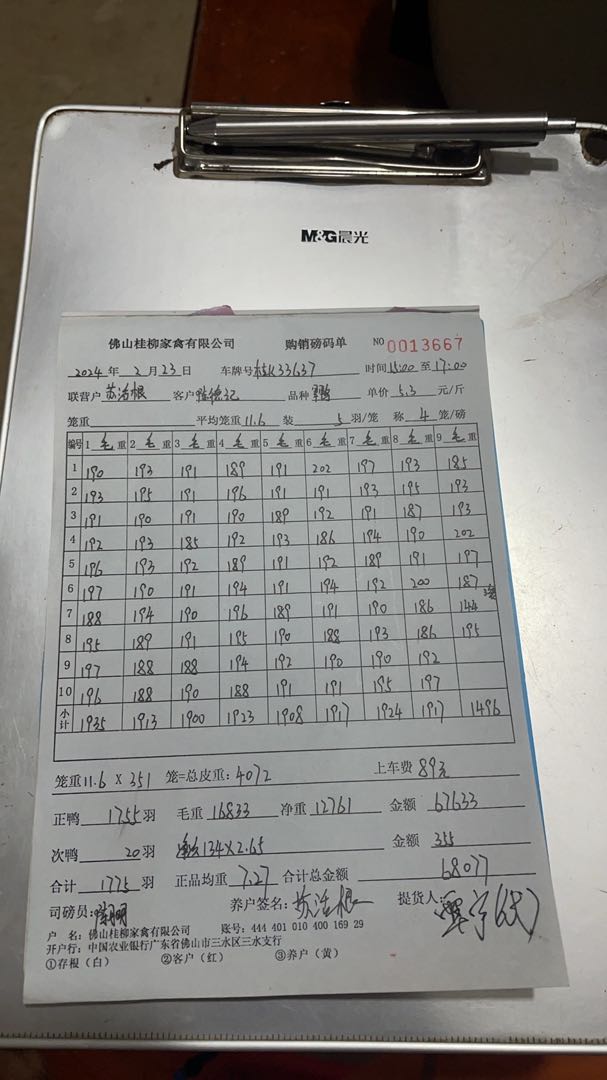 M&G晨光
佛山桂柳家禽有限公司 购销磅码单 NO 0013667
2024 年 2 月 23 日 车牌号 桂K33637 时间 15:00 至 17:00
联营户 苏活根 客户 品种 单价 5.3 元/斤
笼重 平均笼重 11.6 装 5 羽/笼 称 4 笼/磅
编号 1 毛 重 2 毛 重 3 毛 重 4 毛 重 5 毛 重 6 毛 重 7 毛 重 8 毛 重 9 毛 重
1 190 193 191 189 191 202 197 193 185
2 193 195 191 196 191 191 193 195 193
3 191 190 191 190 189 192 191 187 193
4 192 193 185 192 193 186 194 190 202
5 196 193 192 189 191 192 189 191 197
6 197 190 191 194 191 194 192 200 187
7 188 194 190 196 189 191 190 186 144
8 195 189 191 195 190 188 193 186 195
9 197 188 188 194 192 190 190 192
10 196 188 190 188 191 191 195 197
小计 1935 1913 1900 1923 1908 1917 1924 1917 1496
笼重 11.6 X 351 笼=总皮重: 4072 上车费 89元
正鸭 1755 羽 毛重 16833 净重 12761 金额 67633
次鸭 20 羽 134×2.65 金额 355
合计 1775 羽 正品均重 7.27 合计总金额 68077
司磅员: 养户签名: 苏活根 提货人:
户 名: 佛山桂柳家禽有限公司 账号: 444 401 010 400 169 29
开户行: 中国农业银行广东省佛山市三水区三水支行
①存根（白） ②客户（红） ③养户（黄）